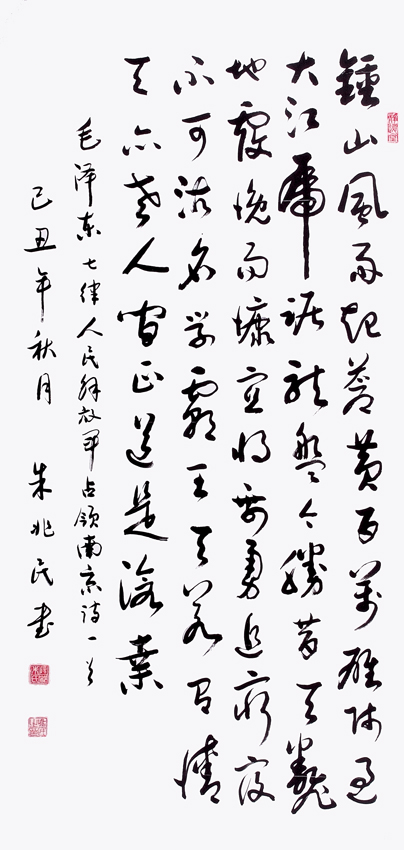 鍾山風雨起蒼黄百萬雄师過
大江虎踞龍盤今勝昔天翻
地覆慨而慷宜将剩勇追窮寇
不可沽名学霸王天若有情
天亦老人間正道是滄桑
毛泽东七律人民解放军占领南京诗一首
己丑年秋月 朱兆民书